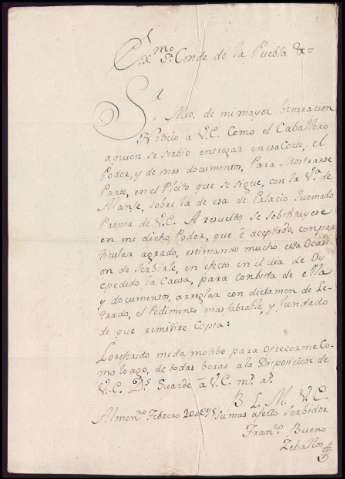 Exmo Sr Conde de la Puebla &a
Sr
Mio, de mi mayor beneracion
Participo a V.E. Como el Caballero
a quien se serbio entregar en esa Corte, el
Poder, y de mas documentos, Para Mostrarse
Parte, en el Pleito que se sigue, con la Va de
Manse, sobre la de esa de Palacio Quemado
Propia de V.E. A resuelto se sobstituyese
en mi dicho Poder, que è aceptado con par
ticular agrado, estimando mucho esta Ocasi
on de Serbirle, en efecto en el dia de Oy
è pedido la Causa, para con bista de ella
y documentos, arreglar con dictamen de Le
trado, el Pedimento mas fabrable, y fundado
de que remitire Copia:
Lo referido me da motibo para ofrecerme Co
mo lo ago, de todas beras a la Disposicion de
V.E. Ds Guarde a V.E. ms as
B. L. M. V.E.
Almendo Febrero 20 de Su mas afecto Serbidor
Franco Bueno
Zeballos